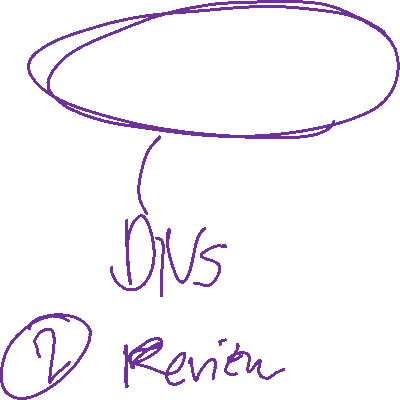 DNS
2 Review